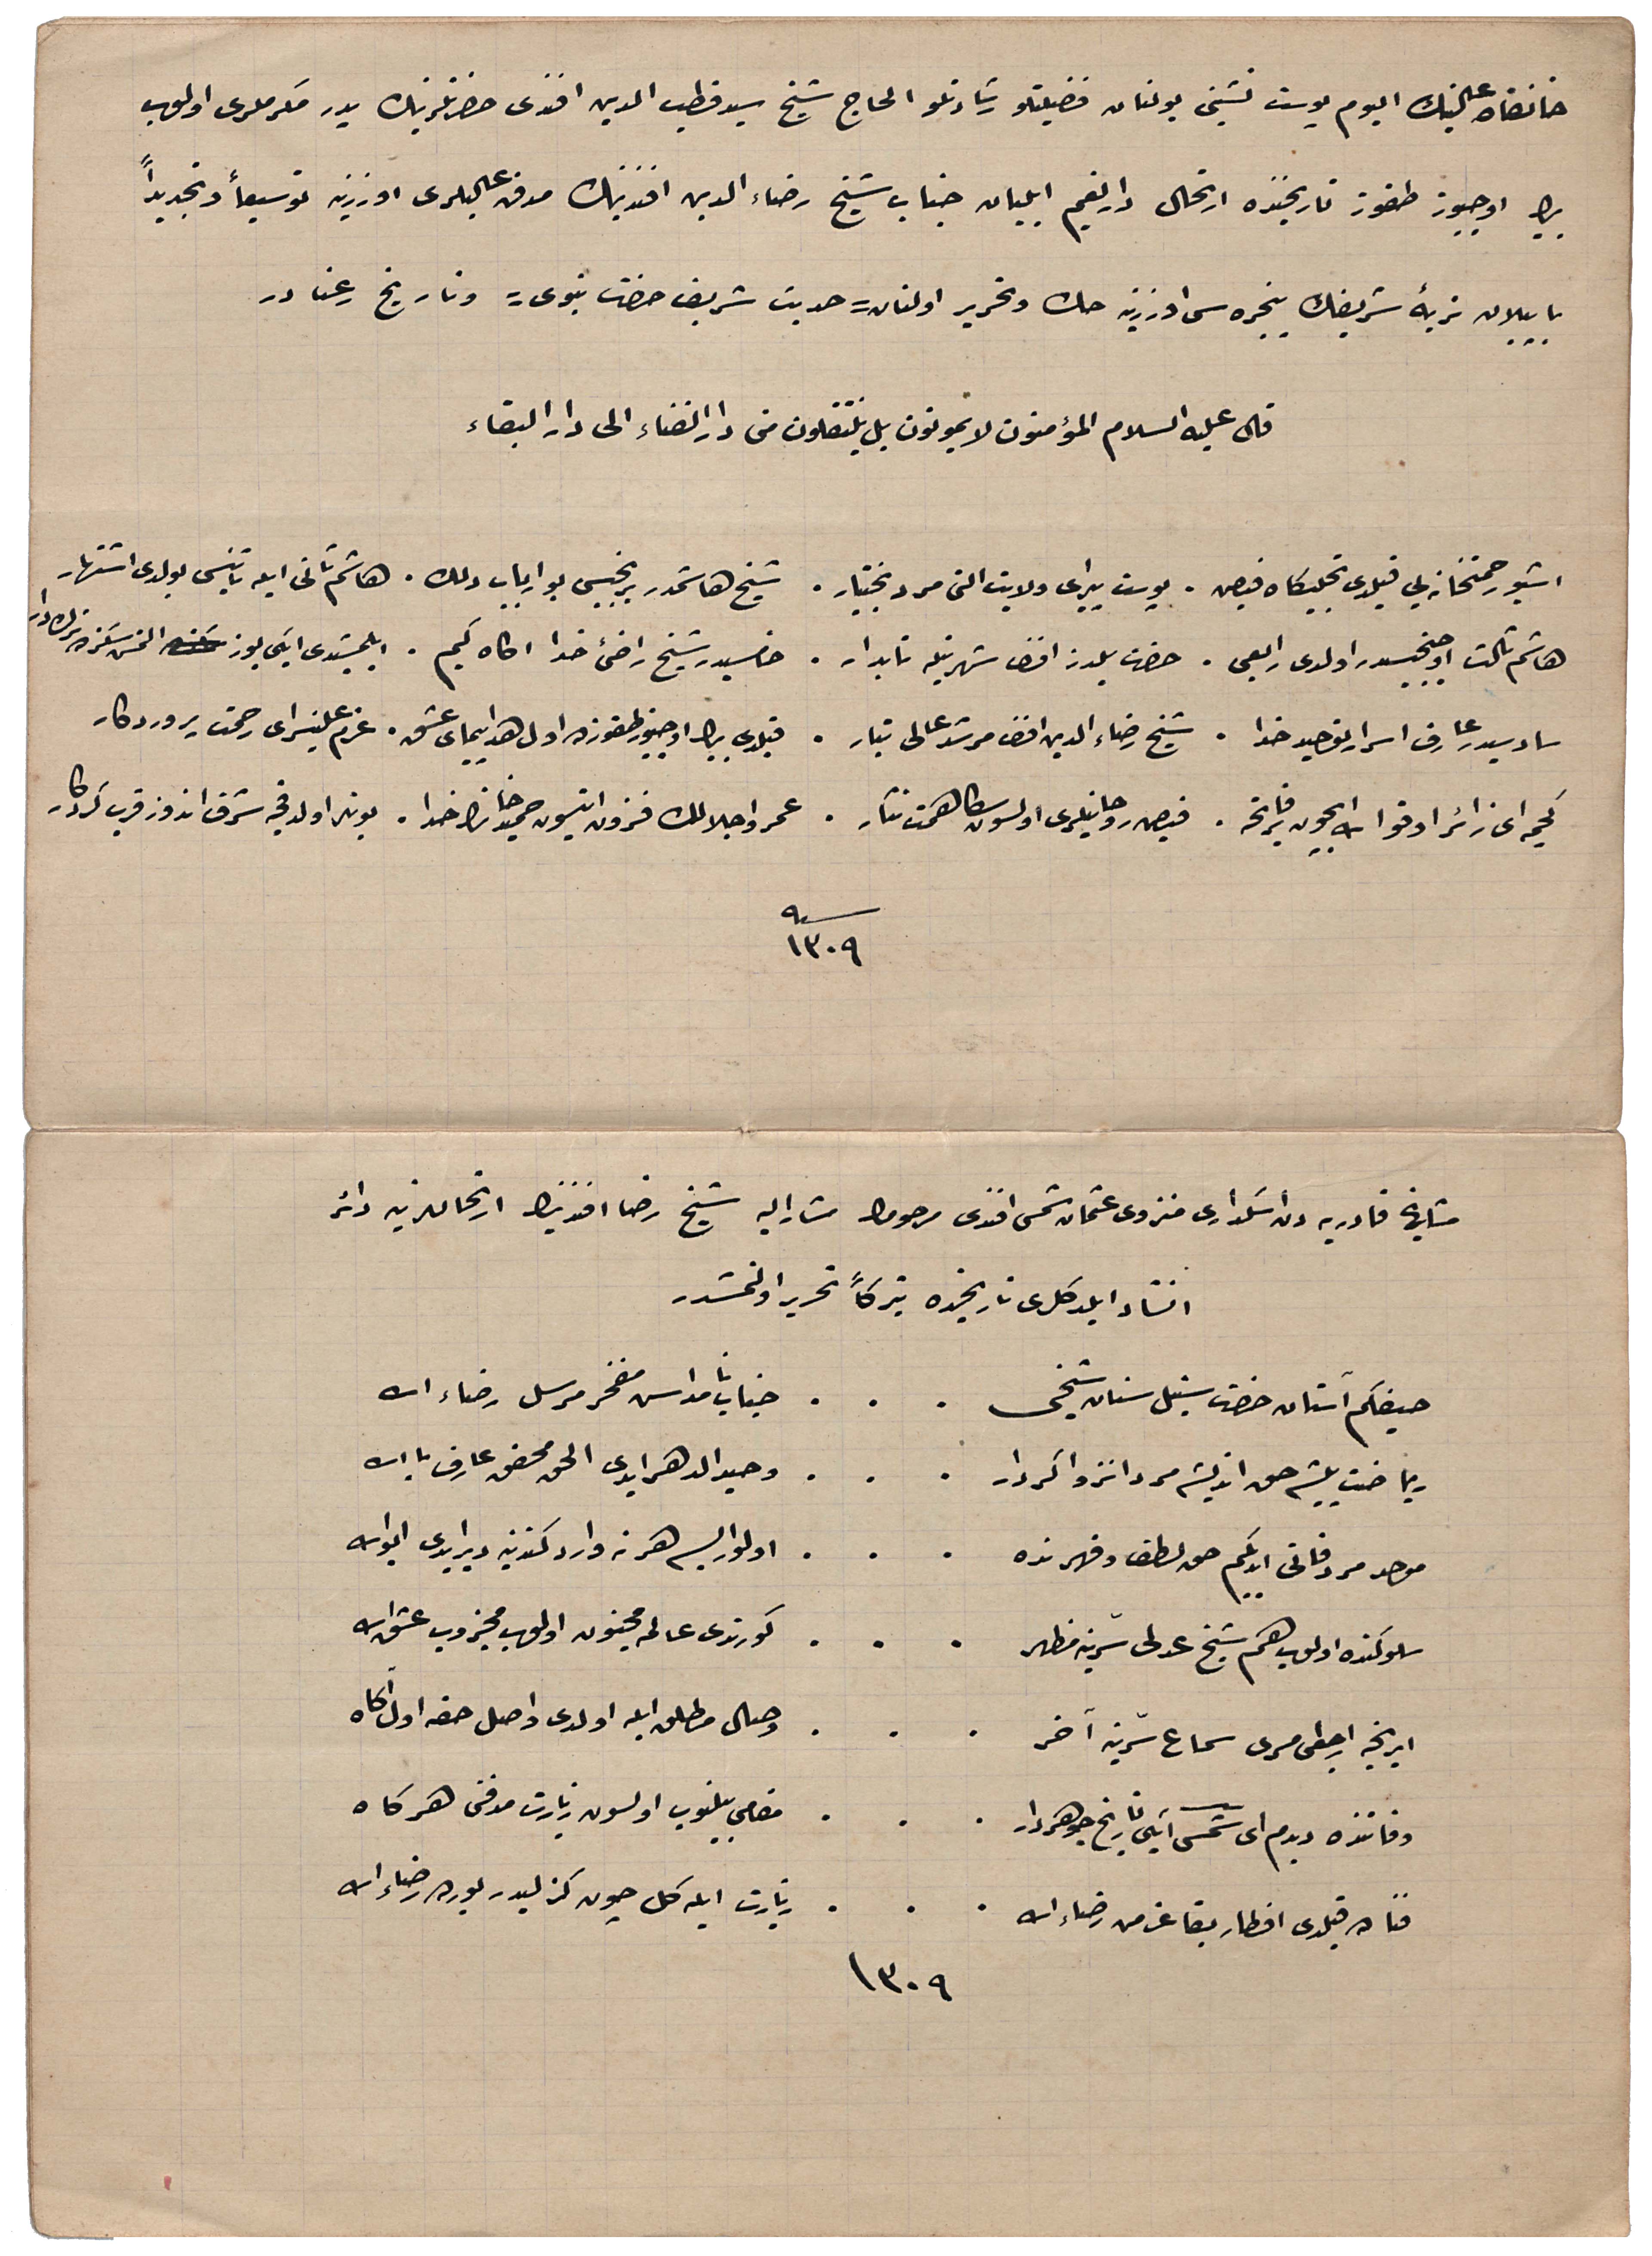 خانقاه عالینك الیوم پوست نشینی بولنان فضیلتلو رشادتلو الحاج شیخ سید قطب الدین افندی حضرتلرینك پدر مكرملری اولوب
بیك اوچیوز طقوز تاریخنده ارتحال دار نعیم ایلیان جناب شیخ رضاء الدین افندینك مدفن عالیلری اوزرینه توسیعاً وتجدیداً
یاپیلان تربهٔ شریفك پنجره سی اوزرینه حك وتحریر اولنان = حدیث شریف حضرت نبوی = وتاریخ رعنا در
قال علیه السلام المؤمنون لا یموتون بل ینتقلون من دار الفناء الی دار البقاء
اشبو رحمتخانه یی قیلدی تجلیكاه فیض . پوست پیرای ولایت التی مرد بختیار . شیخ هاشمدر برنجیسی بو ارباب دلك . هاشم ثانی ایله ثانیسی بولدی اشتهار
هاشم ثالث اوچنجیسیدر اولدی رابعی . حضرت یلدز افندی شهرتیله تابدار . خامسیدر شیخ راضئ خدا اكاه كیم . ایلمشدی ایكی یوز التمش سكزده ترك دار
سادسیدر عارف اسرار توحید خدا . شیخ رضاء الدین افندی مرشد عالی تبار . قیلدی بیك اوچیوز طقوزده اول هدایتمای عشق . عزم علیسرای رحمت پروردكار
كچمه ای زائر اوقو الله ایچون بر فاتحه . فیض روحانیلری اولسون سكا همت نثار . عمر واجلالك فزون ایتسون حمید خانك خدا . بونلر اولدقجه شرف اندوز قرب كردكار
سنه ١٣٠٩
مشایخ قادریه دن اسكداری منزوی عثمان شمس افندی مرحومك مشار الیه شیخ رضا افندینك ارتحالرینه دائر
انشاد ایلدكلری تاریخیده تبركاً تحریر اولنمشدر
حیفاكم آستان حضرت سنبل سنان شیخی . . . جناب نامداس مفخر مرسل رضاء الله
ریاضت پیشه حق اندیشه مرد انزوا كردار . . . وحید الدهر ایدی الحق محقق عارف بالله
موحد مرد فانی ایدیكم حق لطف وقهرنده . . . اولور ایسه هر نه وارد كندینه دیر ایدی ایواله
سلوكنده اولوب هم شیخ عدلی سرینه مظهر . . . كورندی عالمه مجنون اولوب مجذوب عشق الله
ایریخه ارجعی امری سماع سرینه آخر . . . وصال مطلق ایله اولدی واصل حقه اول آكاه
وفاتنده دیدم ای شمس ایكی تاریخ جوهردار . . . مقامی بیلنوب اولسون زیارت مدفنی هركاه
فناده قیلدی افطار بقا عزمن رضاء الله . . . زیارت ایله كل چون كزلیدر بورده رضاء الله
١٣٠٩